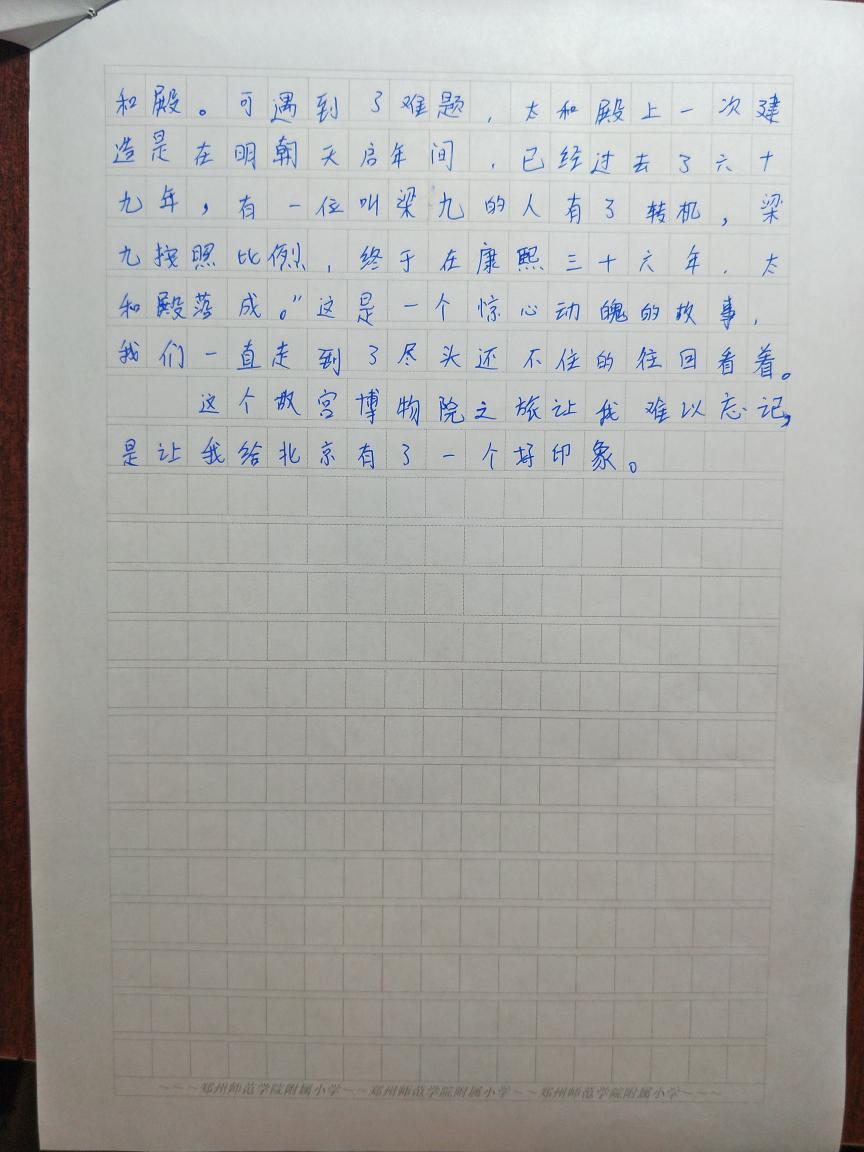 和殿。可遇到了难题,太和殿上一次建
造是在明朝天启年间,已经过去了六十
九年,有一位叫梁九的人有了转机,梁
九按照比例,终于在康熙三十六年.太
和殿落成。"这是一个惊心动魄的故事,
我们一直走到了尽头还不住的往回看着。
这个故宫博物院之旅让我难以忘记,
是让我给北京有了一个好印象。
~~~郑州师范学院附属小学~~郑州师范学院附属小学~~郑州师范学院附属小学~~~